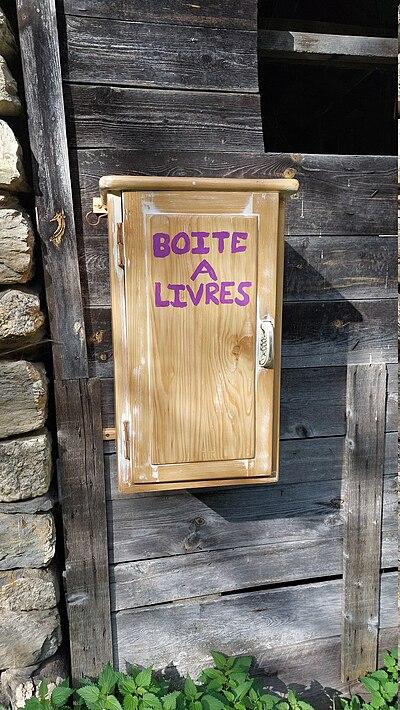 BOITE
A
LIVRES